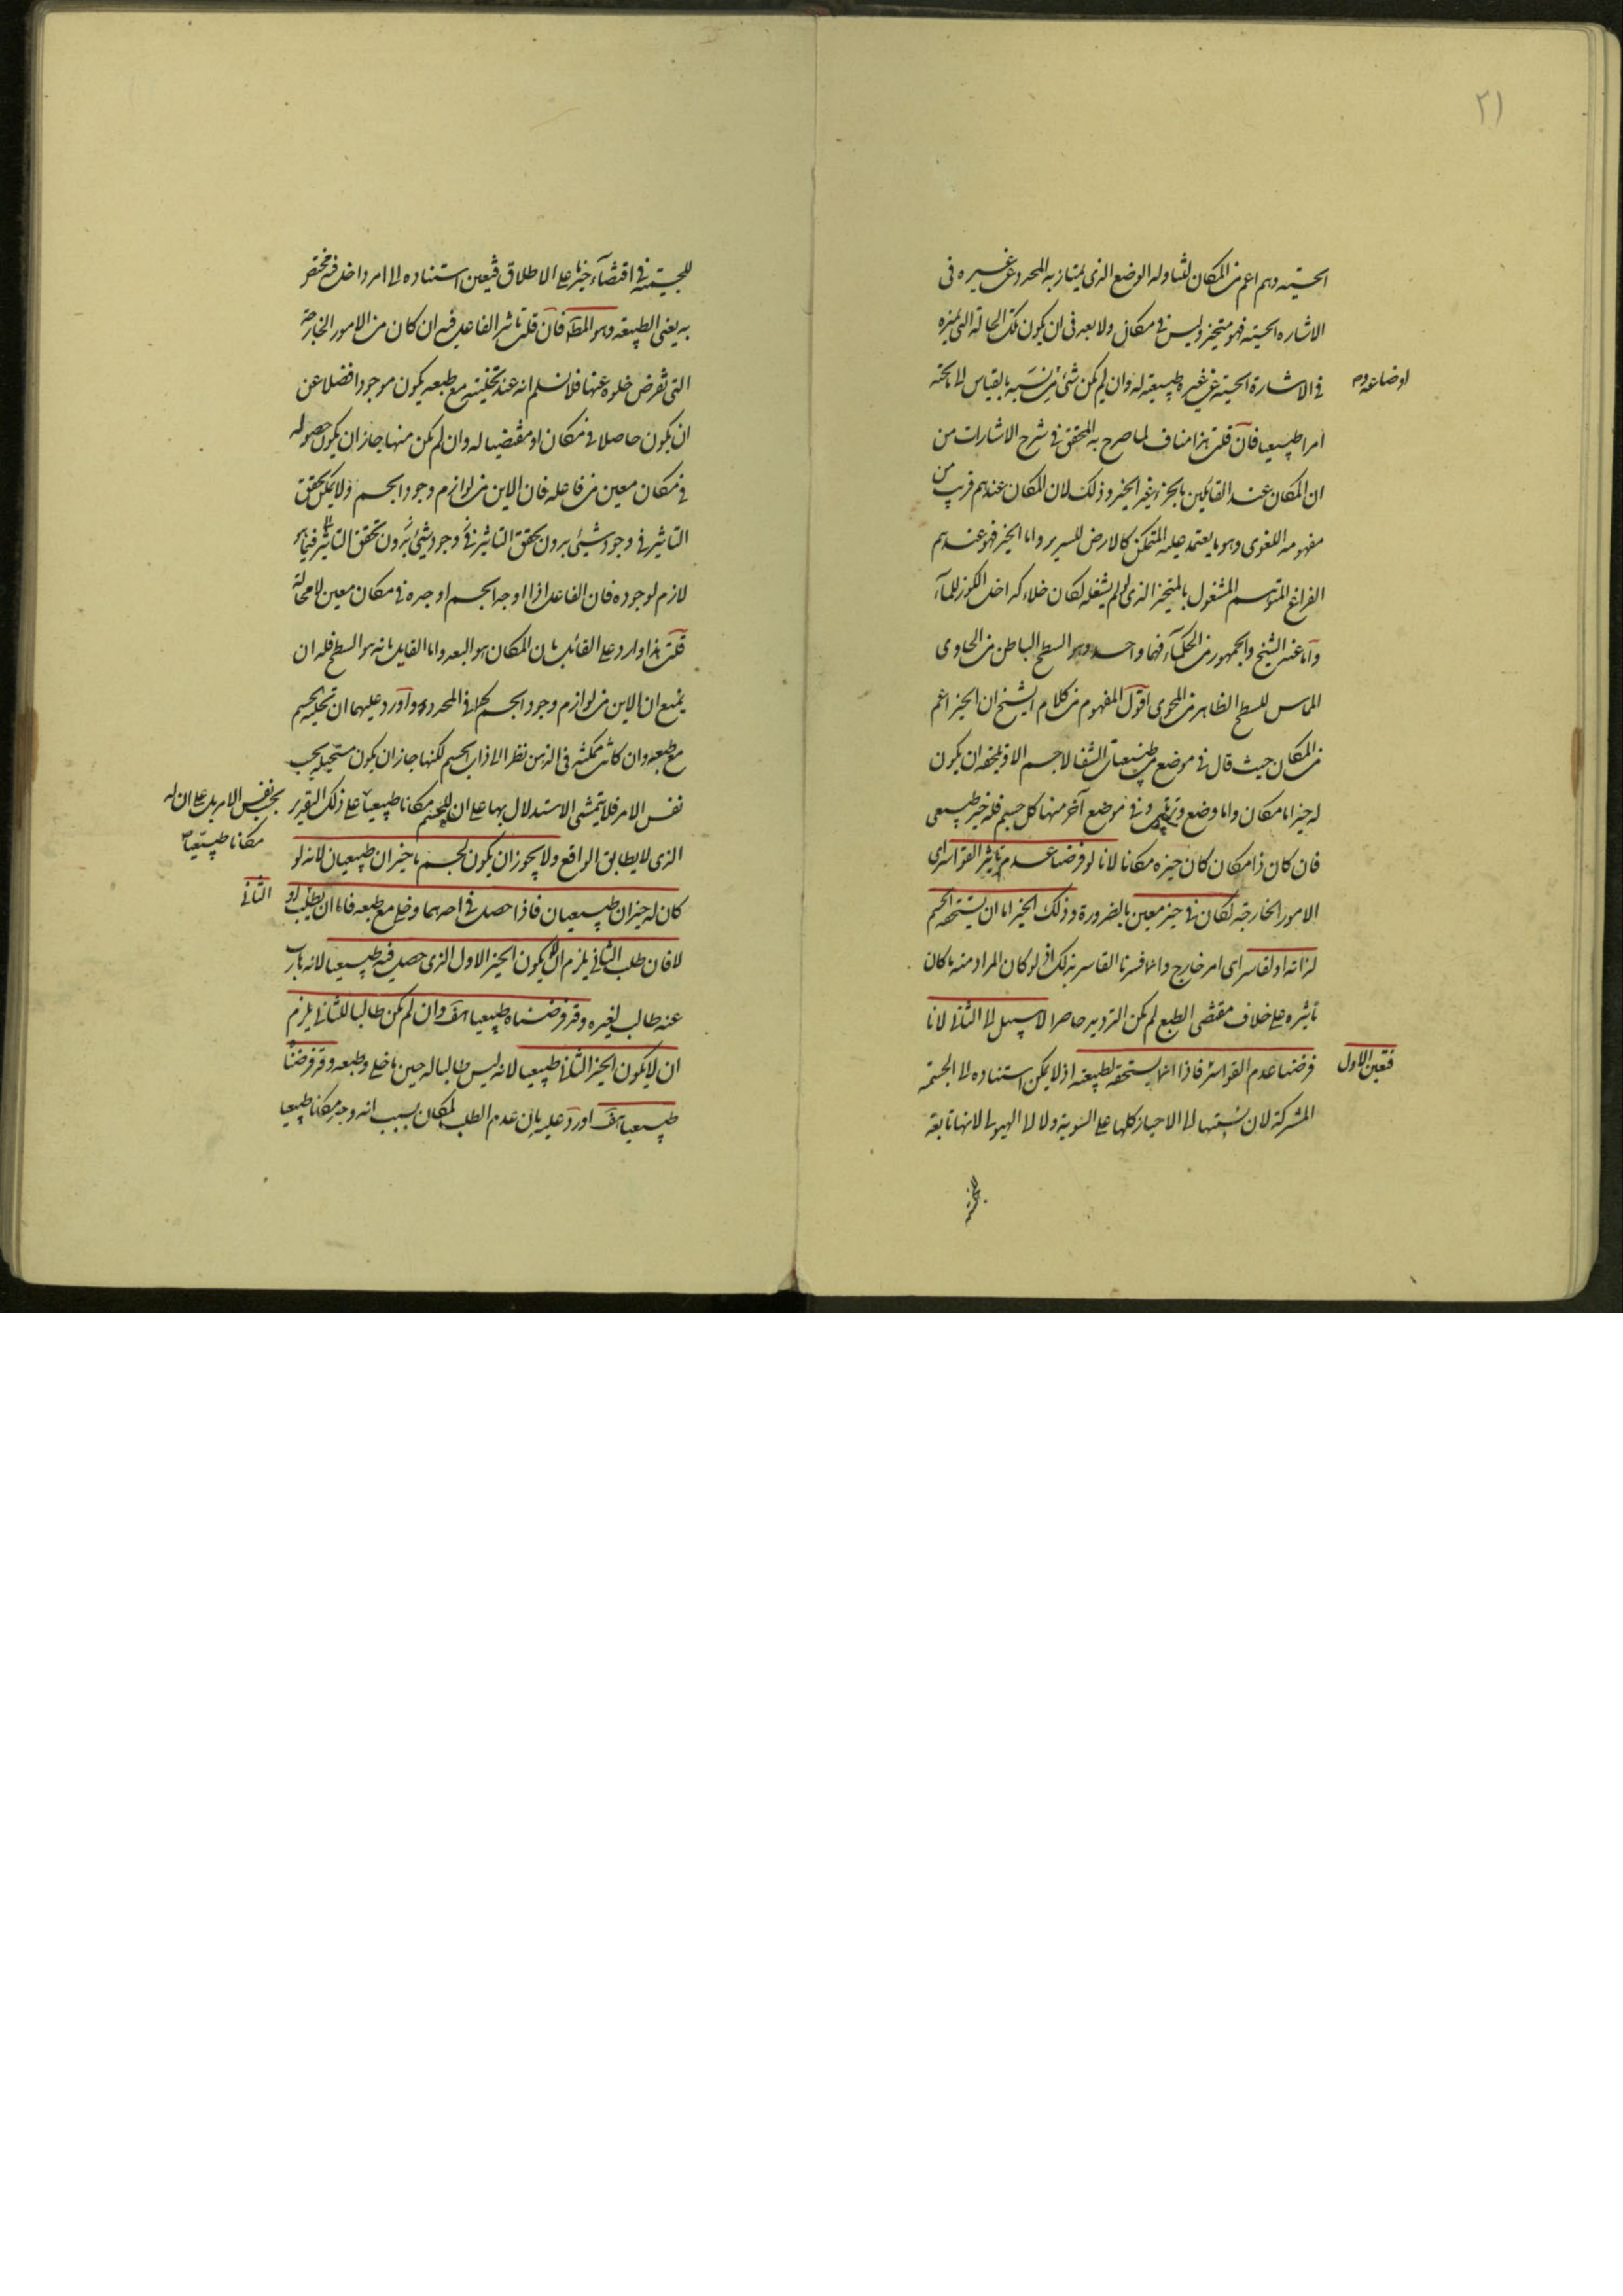 ٢١
الحسية وهم اعم من المكان لتناوله الوضع الذى يمتاز به المحدد عن غيره فى
الاشاره الحسية فهو متحيز وليس فى مكان ولا بعد فى ان يكون تلك الحالة التى تميزه
فى الاشارة الحسية عن غيره طبيعية له وان لم يكن شئ من نسبه بالقياس الى ما تحته
اوضاعه
امرا طبيعيا فان قلت هذا مناف لما صرح به المحقق فى شرح الاشارات من
ان المكان عند القائلين بالجزء غير الحيز وذلك لان المكان عندهم قريب من
مفهومه اللغوى وهو ما يعتمد عليه المتمكن كالارض للسرير واما الحيز فهو عندهم
الفراغ المتوهم المشغول بالمتحيز الذى لو لم يشغله لكان خلاء كداخل الكوز للماء
واما عند الشيخ والجمهور من الحكماء فهما واحد وهو السطح الباطن من الحاوى
المماس للسطح الظاهر من المحوى اقول المفهوم من كلام الشيخ ان الحيز اعم
من المكان حيث قال فى موضع من طبيعيات الشفا لا جسم الا ويلحقه ان يكون
له حيز اما مكان واما وضع وترتيب وفى موضع آخر منها كل جسم فله حيز طبيعى
فان كان ذا مكان كان حيزه مكانا لانا لو فرضنا عدم تاثير القواسر اى
الامور الخارجة لكان فى حيز معين بالضرورة وذلك الحيز اما ان يستحقه الجسم
لذاته او لقاسر اى امر خارج وانما فسرنا القاسر بذلك اذ لو كان المراد منه ما كان
تاثيره على خلاف مقتضى الطبع لم يكن الترديد حاصرا لا سبيل الى الثانى لانا
فتعين الاول
فرضنا عدم القواسر فاذا انما يستحقه لطبيعته اذ لا يمكن استناده الى الجسمية
المشتركة لان نسبتها الى الاحياز كلها على السوية ولا الى الهيولى لانها تابعة
للجسمية
للجسمية فى اقتضاء حيز ما على الاطلاق فتعين استناده الى امر داخل فيه مختص
به يعنى الطبيعة وهو المط فان قلت تاثير الفاعل فيه ان كان من الامور الخارجة
التى نفرض خلوه عنها فلا نسلم انه عند تخليته مع طبعه يكون موجودا فضلا عن
ان يكون حاصلا فى مكان او مقتضيا له وان لم يكن منها جاز ان يكون حصوله
فى مكان معين من فاعله فان الاين من لوازم وجود الجسم ولا يمكن تحقق
التاثير فى وجود شئ بدون تحقق التاثير فى وجود شئ بدون تحقق التاثير فيما هو
لازم لوجوده فان الفاعل اذا اوجد الجسم اوجده فى مكان معين لا محالة
قلت هذا وارد على القائل بان المكان هو البعد واما القايل بانه هو السطح فله ان
يمنع ان الاين من لوازم وجود الجسم كما فى المحدد واورد عليهما ان تخلية الجسم
مع طبعه وان كانت ممكنة فى الذهن نظرا الى ذات الجسم لكنها جاز ان يكون مستحيلة بحسب
نفس الامر فلا يتمشى الاستدلال بها على ان للجسم مكانا طبيعيا على ذلك التقدير
بحسب نفس الامر بل على ان له
مكانا طبيعيا
الذى لا يطابق الواقع ولا يجوز ان يكون لجسم ما حيزان طبيعيان لانه لو
كان له حيزان طبيعيان فاذا حصل فى احدهما وخلى مع طبعه فاما ان يطلب او
الثانى
لا فان طلب الثانى يلزم ان لا يكون الحيز الاول الذى حصل فيه طبيعيا لانه هارب
عنه طالب لغيره وقد فرضناه طبيعيا هف وان لم يكن طالبا للثانى يلزم
ان لا يكون الحيز الثانى طبيعيا لانه ليس طالبا له حين ما خلى وطبعه وقد فرضناه
طبيعيا هف اورد عليه بان عدم الطلب لمكان بسبب انه وجد مكانا طبيعيا